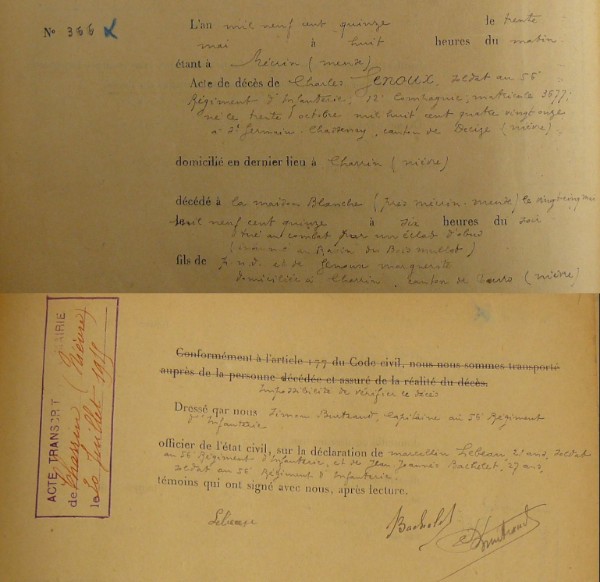 N° 366
L'an mil neuf cent quinze le trente
mai à huit heures du matin
étant à Mécrin (meuse)
Acte de décès de Charles Genoux, soldat au 56e
Régiment d'Infanterie, 12e Compagnie, matricule 3877;
né le trente octobre mil huit cent quatre vingt onze
à St Germain-Chassenay, canton de Decize (nièvre),
domicilié en dernier lieu à Charrin (nièvre)
décédé à la maison Blanche (près mécrin-meuse) le vingt cinq mai
mil neuf cent quinze à six heures du soir
tué au combat par un éclat d'obus
(inhumé au Ravin du Bois mullot)
fils de F.n.d. et de Genoux marguerite
domiciliée à Charrin, canton de (nièvre)
ACTE TRANSCRIT MAIRIE
de Charrin (Nièvre)
le juillet 1915
Conformément à l'article 177 du Code civil, nous nous sommes transporté
auprès de la personne décédée et assuré de la réalité du décès.
Impossibilité de vérifier le décès
Dressé par nous Simon Capitaine au 56e Régiment
d'Infanterie
officier de l'état civil, sur la déclaration de marcellin Lebeau, 21 ans, soldat
au 56e Régiment d'Infanterie, et de Jean Bachelet, 27 ans,
soldat au 56e Régiment d'Infanterie.
témoins qui ont signé avec nous, après lecture.
Lebeau Bachelet